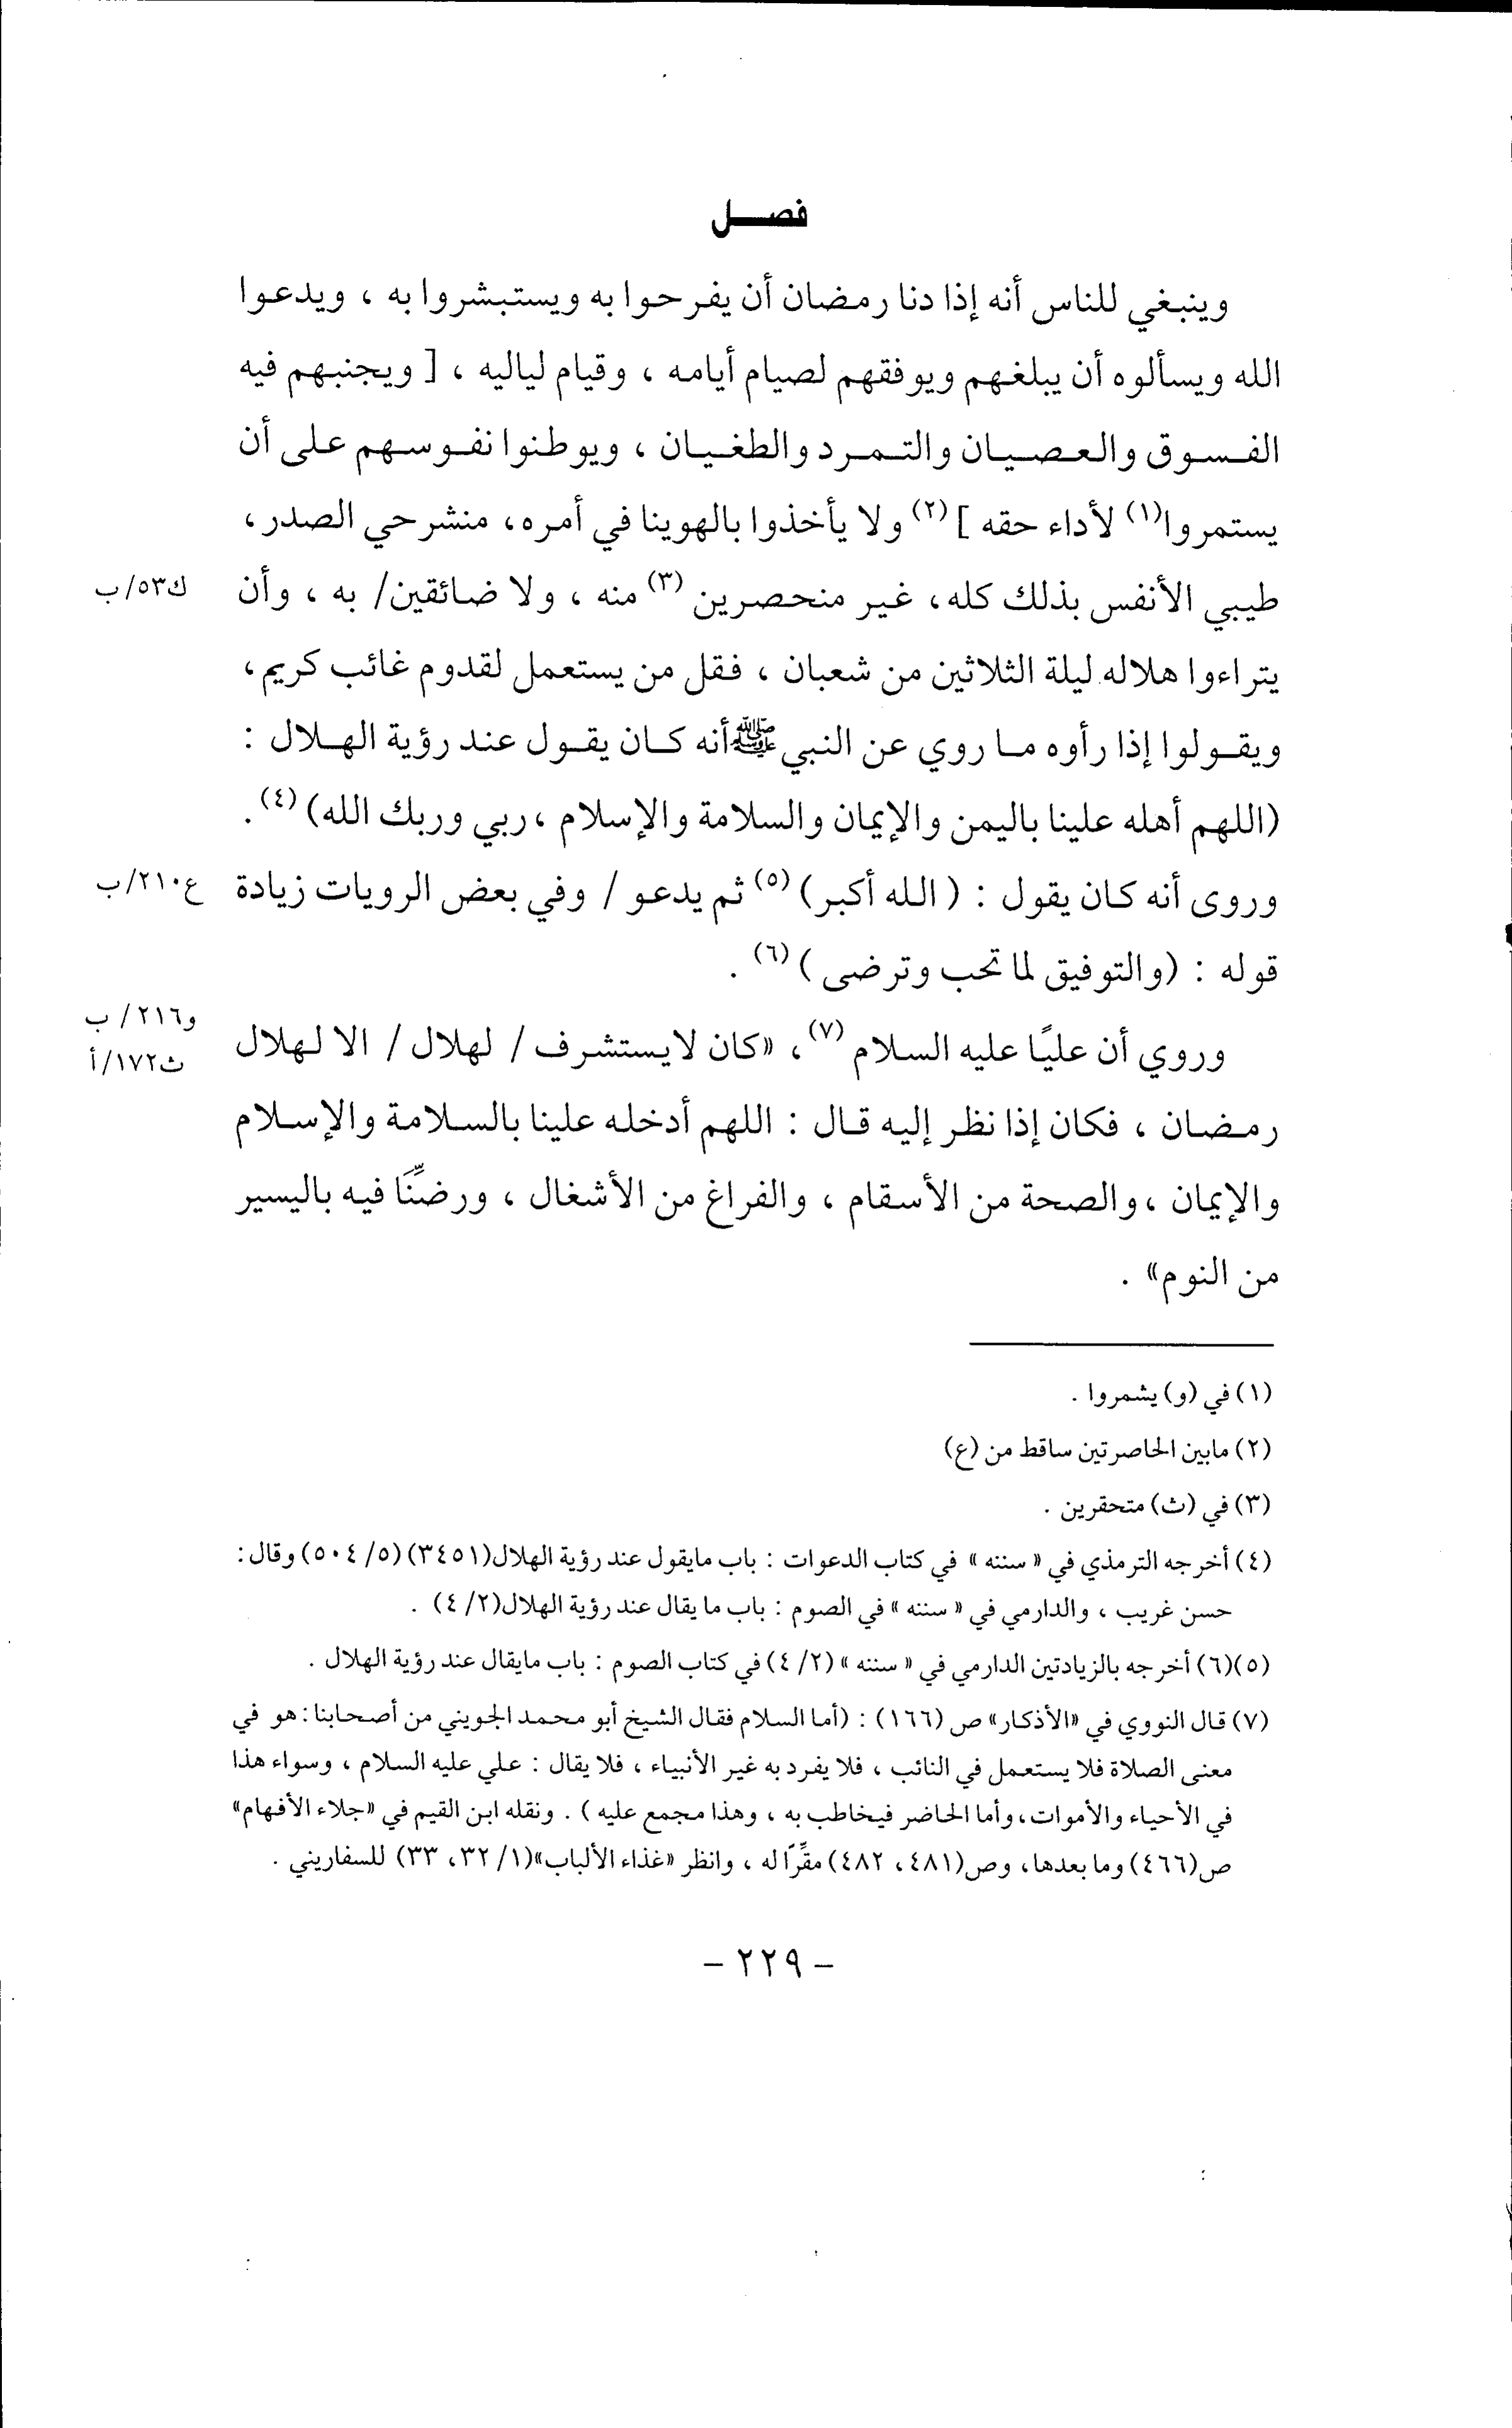 فصل
وينبغي للناس أنه إذا دنا رمضان أن يفرحوا به ويستبشروا به ، ويدعوا
الله ويسألوه أن يبلغهم ويوفقهم لصيام أيامه ، وقيام لياليه ، [ ويجنبهم فيه
الفسوق والعصيان والتمرد والطغيان ، ويوطنوا نفوسهم على أن
يستمروا(١) لأداء حقه ](٢) ولا يأخذوا بالهوينا في أمره، منشرحي الصدر،
طيبي الأنفس بذلك كله، غير منحصرين(٣) منه ، ولا ضائقين/ به ، وأن
ك٥٣/ب
يتراءوا هلاله ليلة الثلاثين من شعبان ، فقل من يستعمل لقدوم غائب كريم،
ويقولوا إذا رأوه ما روي عن النبي ﷺ أنه كان يقول عند رؤية الهلال :
(اللهم أهله علينا باليمن والإيمان والسلامة والإسلام ،ربي وربك الله)(٤).
وروى أنه كان يقول : ( الله أكبر)(٥) ثم يدعو / وفي بعض الرويات زيادة
ع٢١٠/ب
قوله : (والتوفيق لما تحب وترضى )(٦) .
وروي أن عليًا عليه السلام(٧)، «كان لايستشرف/ لهلال/ الا لهلال
و٢١٦/ ب
ث١٧٢/أ
رمضان ، فكان إذا نظر إليه قال : اللهم أدخله علينا بالسلامة والإسلام
والإيمان ،والصحة من الأسقام ، والفراغ من الأشغال ، ورضِّنَا فيه باليسير
من النوم» .
(١) في (و) يشمروا .
(٢) مابين الحاصرتين ساقط من (ع)
(٣) في (ث) متحقرين .
(٤) أخرجه الترمذي في « سننه » في كتاب الدعوات : باب مايقول عند رؤية الهلال(٣٤٥١) (٥/ ٥٠٤) وقال:
حسن غريب ، والدارمي في « سننه » في الصوم : باب ما يقال عند رؤية الهلال(٢/ ٤) .
(٥)(٦) أخرجه بالزيادتين الدارمي في « سننه » (٢/ ٤) في كتاب الصوم : باب مايقال عند رؤية الهلال .
(٧) قال النووي في «الأذكار» ص (١٦٦) : (أما السلام فقال الشيخ أبو محمد الجويني من أصحابنا: هو في
معنى الصلاة فلا يستعمل في النائب ، فلا يفرد به غير الأنبياء ، فلا يقال : علي عليه السلام ، وسواء هذا
في الأحياء والأموات، وأما الحاضر فيخاطب به ، وهذا مجمع عليه ) . ونقله ابن القيم في «جلاء الأفهام»
ص(٤٦٦) وما بعدها، وص(٤٨١ ، ٤٨٢) مقِّرًا له ، وانظر «غذاء الألباب»(١/ ٣٢، ٣٣) للسفاريني .
- ٢٢٩ -